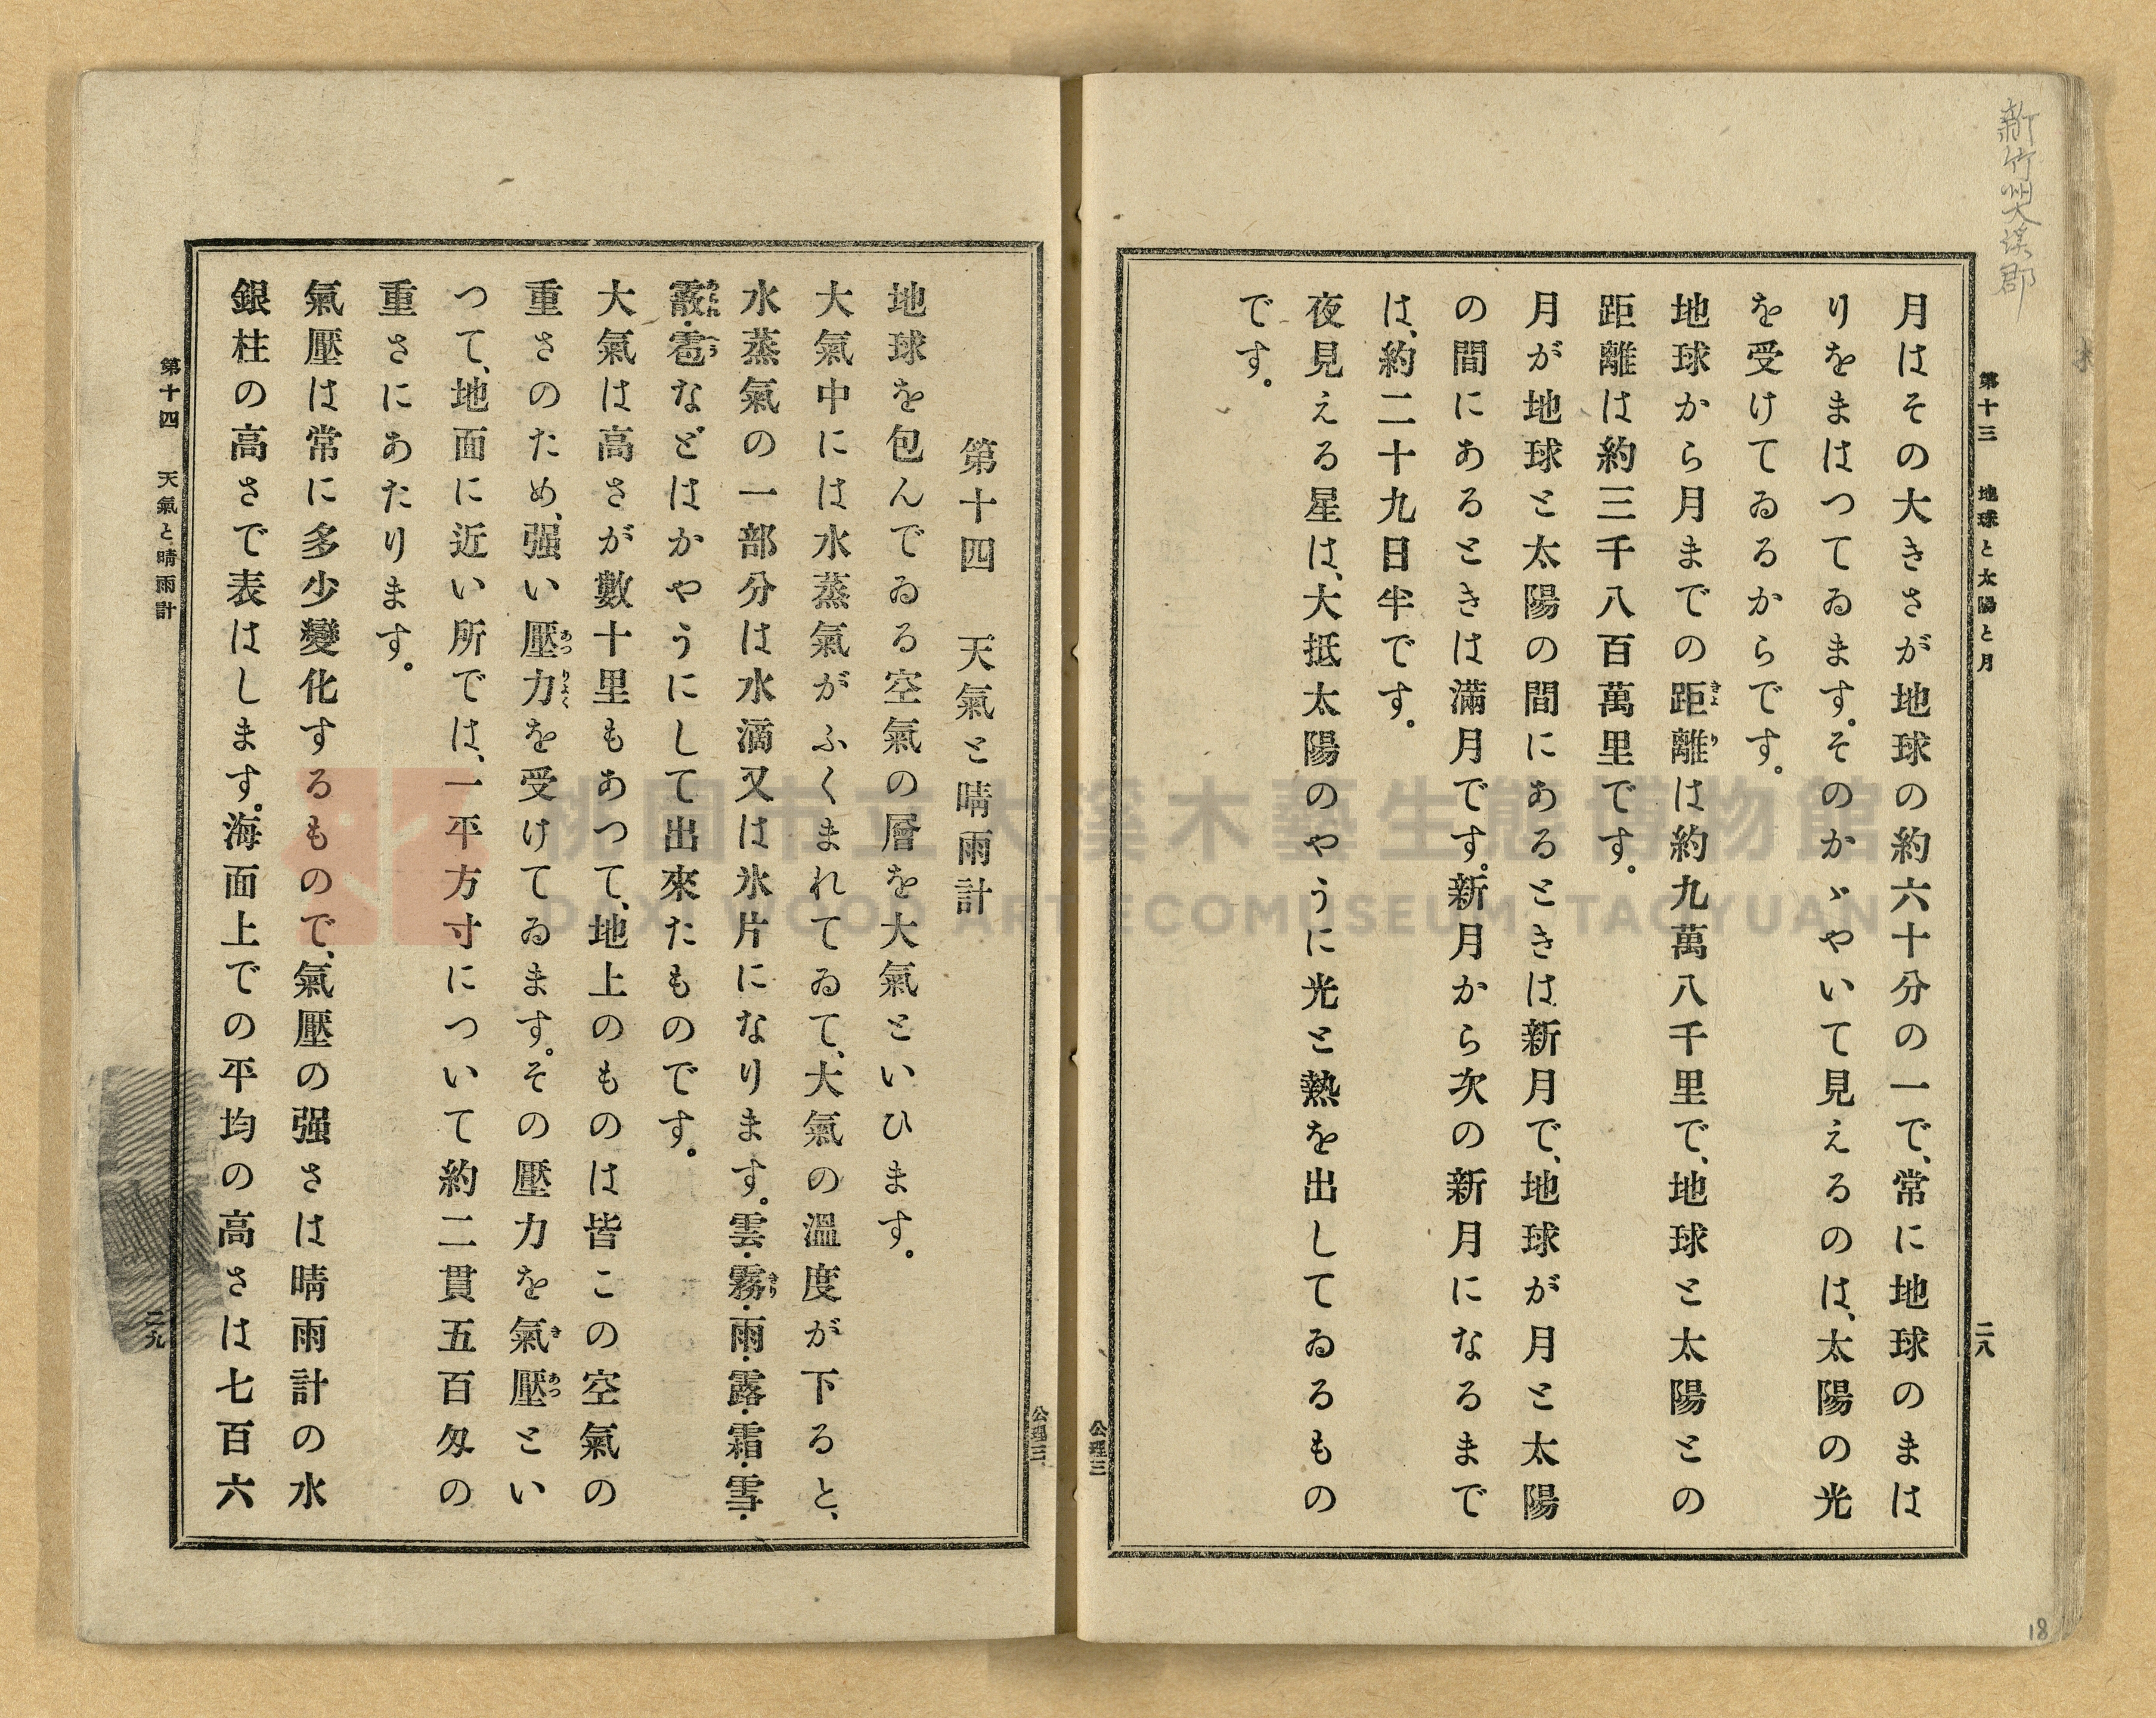 新竹州大溪郡
第十三 地球と太陽と月
二八
月はその大きさが地球の約六十分の一で、常に地球のまは
りをまはつてゐます。そのかゞやいて見えるのは、太陽の光
を受けてゐるからです。
地球から月までの距離は約九萬八千里で、地球と太陽との
距離は約三千八百萬里です。
月が地球と太陽の間にあるときは新月で、地球が月と太陽
の間にあるときは滿月です。新月から次の新月になるまで
は、約二十九日半です。
夜見える星は、大抵太陽のやうに光と熱を出してゐるもの
です。
公理三
18
公理三
第十四 天氣と晴雨計
地球を包んでゐる空氣の層を大氣といひます。
大氣中には水蒸氣がふくまれてゐて、大氣の溫度が下ると、
水蒸氣の一部分は水滴又は氷片になります。雲・霧・雨・露・霜・雪・
霰・雹などはかやうにして出來たものです。
大氣は高さが數十里もあつて、地上のものは皆この空氣の
重さのため、强い壓力を受けてゐます。その壓力を氣壓とい
つて、地面に近い所では、一平方寸について約二貫五百匁の
重さにあたります。
氣壓は常に多少變化するもので、氣壓の强さは晴雨計の水
銀柱の高さで表はします。海面上での平均の高さは七百六
第十四 天氣と晴雨計
二九
桃園市立大溪木藝生態博物館
DAXI WOOD ART ECOMUSEUM, TAOYUAN